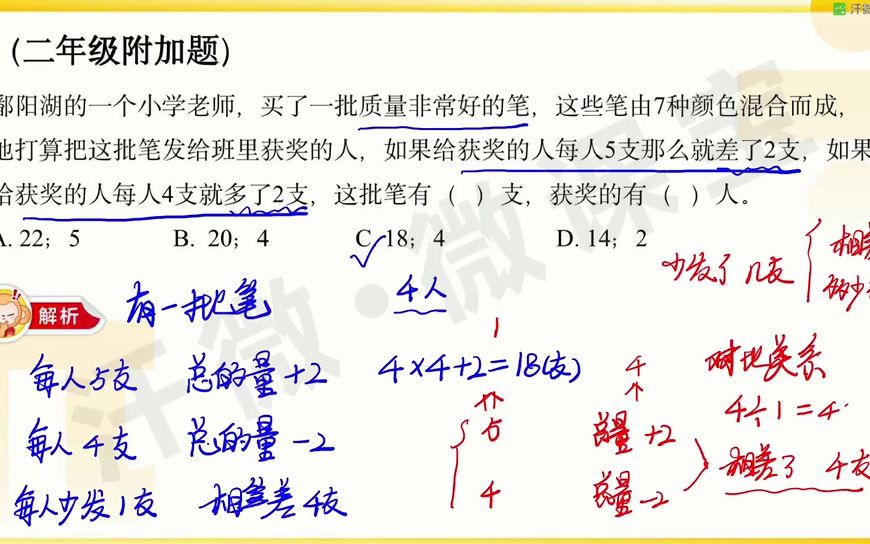 汗微
(二年级附加题)
鄱阳湖的一个小学老师，买了一批质量非常好的笔，这些笔由7种颜色混合而成，
他打算把这批笔发给班里获奖的人，如果给获奖的人每人5支那么就差了2支，如果
给获奖的人每人4支就多了2支，这批笔有（ ）支，获奖的有（ ）人。
A. 22；5 B. 20；4 C. 18；4 D. 14；2
汗微·微课堂
解析
有一批笔 4人
少发了几支 相差
每人5支 总的量+2 4×4+2=18(支)
1
5
4
4
总量+2
总量-2
对比关系
4÷1=4
相差了 4支
每人4支 总的量-2
每人少发1支 相差4支